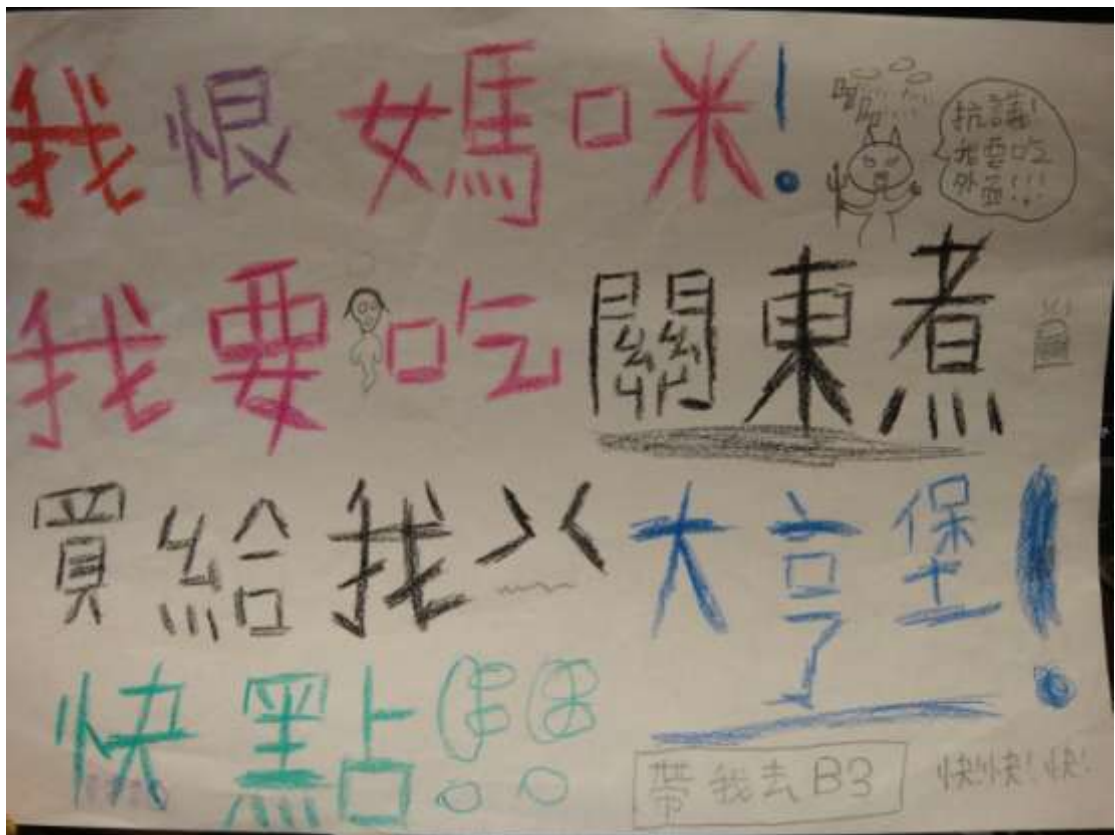 我恨媽咪!
抗議!
我要吃
外面!!!
我要吃關東煮
買給我>< 大亨堡!
快點!!
帶我去B3
快!快!快!